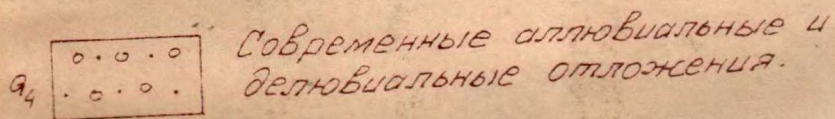 Современные аллювиальные и
Q₄ делювиальные отложения.